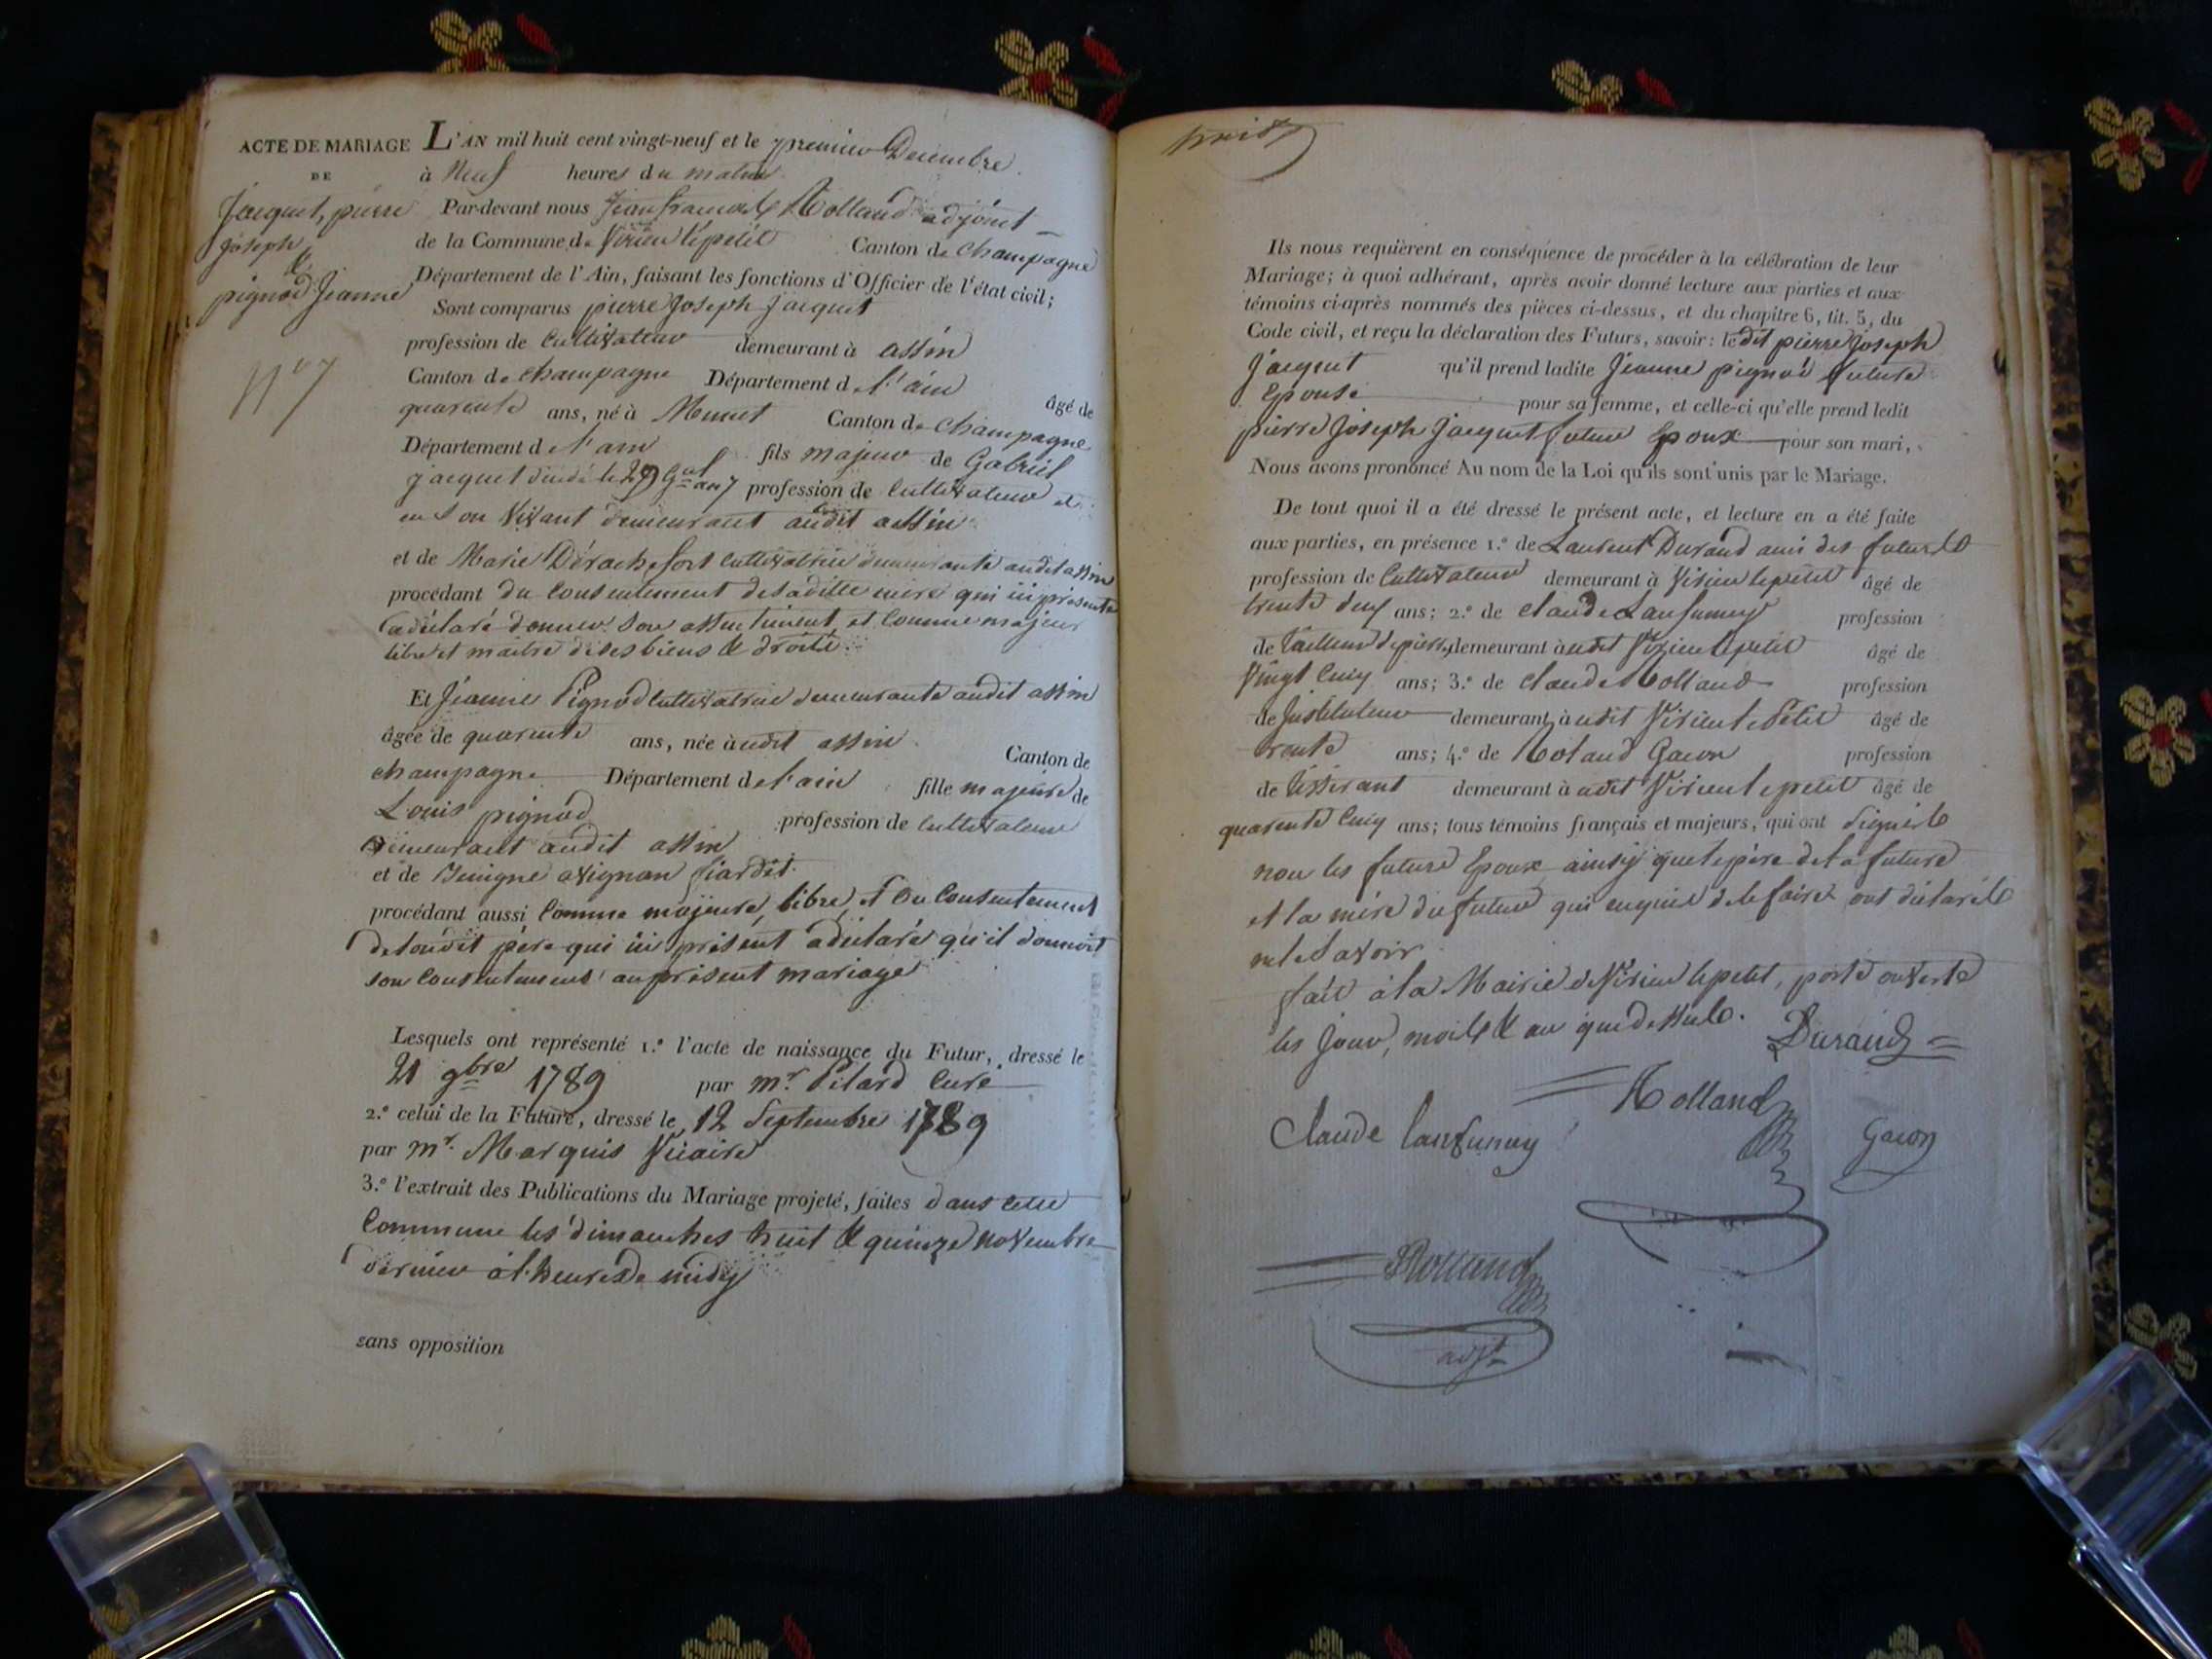 ACTE DE MARIAGE
DE
Jacquet, pierre
Joseph
&
pignod Jeanne
N.º 7
L'AN mil huit cent vingt-neuf et le premier Decembre
à Neuf heures du matin
Par-devant nous Jean francois Rolland adjoint
de la Commune de Virieu le petit Canton de champagne
Département de l'Ain, faisant les fonctions d'Officier de l'état civil;
Sont comparus pierre Joseph Jacquet
profession de Cultivateur demeurant à assin
Canton de champagne Département de l'ain âgé de
quarente ans, né à Munet Canton de champagne
Département de l'ain fils majeur de Gabriel
jacquet le 29 an 7 profession de Cultivateur et
en son Vivant demeurant audit assin
et de Marie Dérochefort Cultivatrice demeurante audit assin
procédant du Consentement de sa dille mère qui ici présente
a déclaré donner son et Comme majeur
libre et maitre de ses biens & droits
Et Jeanne Pignod Cultivatrice demeurante audit assin
âgée de quarente ans, née audit assin Canton de
champagne Département de l'ain fille majeure de
Louis pignod profession de Cultivateur
Demeurant audit assin
et de Benigne avignon
procédant aussi Comme majeure, libre, et du Consentement
de sondit père qui ici présent a déclaré qu'il donnoit
son Consentement au présent mariage
Lesquels ont représenté 1.º l'acte de naissance du Futur, dressé le
21 9bre 1789 par mr. Pilard Curé
2.º celui de la Future, dressé le 12 Septembre 1789
par mr. Marquis Vicaire
3.º l'extrait des Publications du Mariage projeté, faites dans cette
Commune les dimanches huit & quinze novembre
dernier à l'heure de midy
sans opposition
huit
Ils nous requièrent en conséquence de procéder à la célébration de leur
Mariage; à quoi adhérant, après avoir donné lecture aux parties et aux
témoins ci-après nommés des pièces ci-dessus, et du chapitre 6, tit. 5, du
Code civil, et reçu la déclaration des Futurs, savoir: ledit pierre Joseph
Jacquet qu'il prend ladite Jeanne pignod future
Epouse pour sa femme, et celle-ci qu'elle prend ledit
pierre Joseph Jacquet futur Epoux pour son mari,
Nous avons prononcé Au nom de la Loi qu'ils sont unis par le Mariage.
De tout quoi il a été dressé le présent acte, et lecture en a été faite
aux parties, en présence 1.º de Laurent Durand ami des futurs
profession de Cultivateur demeurant à Virieu le petit âgé de
trente neuf ans; 2.º de Claude Lanfumey profession
de tailleur de pierre, demeurant audit Virieu le petit âgé de
Vingt Cinq ans; 3.º de Claude Rolland profession
de Instituteur demeurant audit Virieu le Petit âgé de
trente ans; 4.º de Roland Gacon profession
de tisserant demeurant à udit Virieu le petit âgé de
quarente Cinq ans; tous témoins français et majeurs, qui ont signés
non les future Epoux ainsy que le père de la future
et la mère du futur qui enquis de le faire ont déclarés
ne le Savoir
fait à la Mairie de Virieu le petit, porte ouverte
les jour, mois & an que dessus.
Durand
Rolland
Claude Lanfumey
Gacon
Rolland
adjt